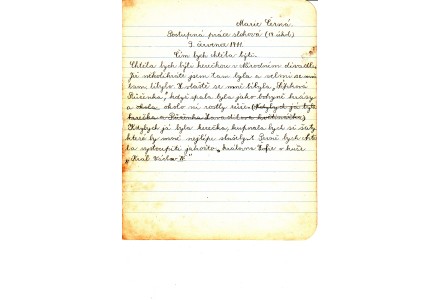 Marie Černá.
Postupná práce slohová (19. úkol)
9. června 1911.
Čím bych chtěla býti.
Chtěla bych býti herečkou v Národním divadle.
Již několikráte jsem tam byla a velmi se mi
tam líbylo. Zvláště se mi líbyla, Šípková
Růženka, když spala byla jako bohyně krásy
a okolo ní rostly růže. (Kdybych já byla
herečka a Růženka
Kdybych já byla herečka, kupovala bych si šaty
které by mně nejlépe slušely. První bych chtě-
la vystoupiti jakožto „královna Žofie" v kuse
„Král Václav IV."